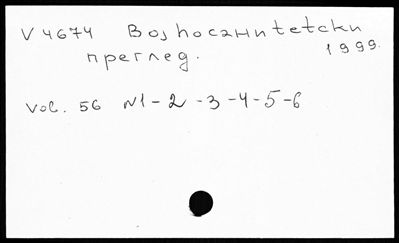 V 4674 Војносанитетски
преглед. 1999.
Vol. 56 N1-2-3-4-5-6